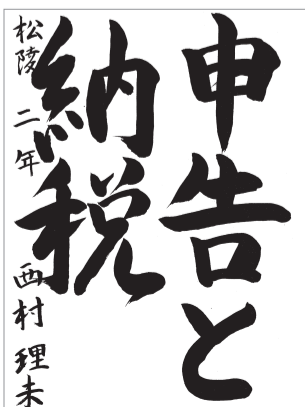 申告と
納税
松陵 二年 西村 理未